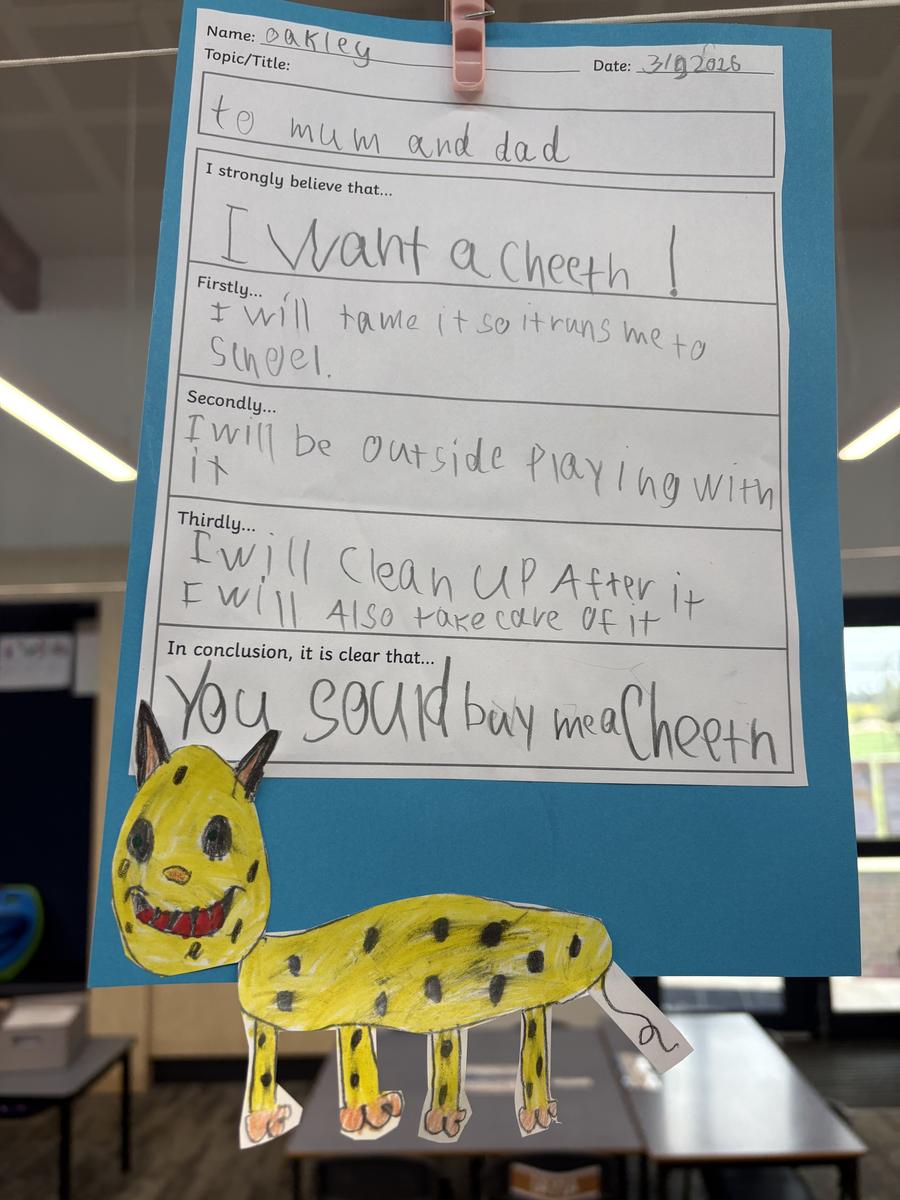 Name: oakley
Date: 3/9 2026
Topic/Title:
to mum and dad
I strongly believe that...
I want a cheeth !
Firstly...
I will tame it so it runs me to
School.
Secondly...
I will be outside Playing with
it
Thirdly...
I will Clean UP After it
I will Also take care of it
In conclusion, it is clear that...
You sould buy me a Cheeth